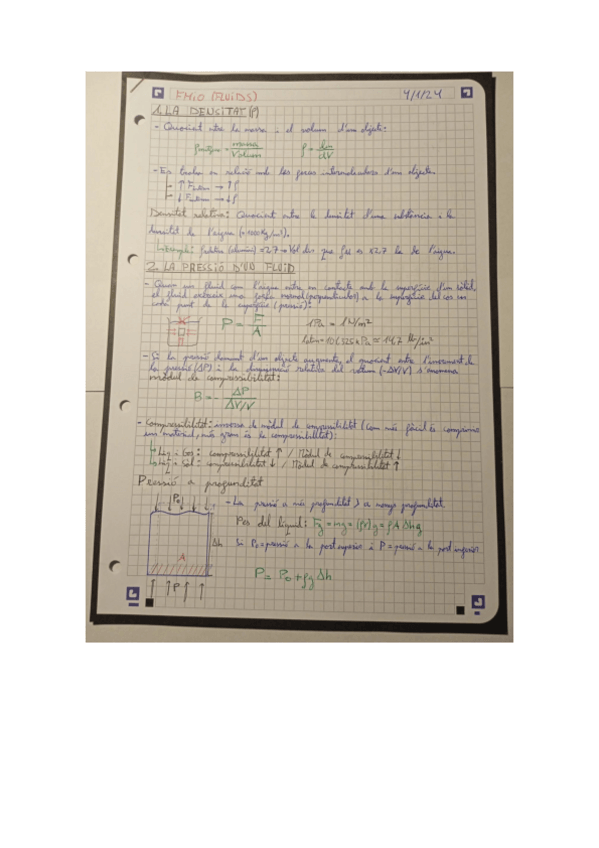 FMiO (FLUIDS) 4/1/24
1. LA DENSITAT (ρ)
- Quocient entre la massa i el volum d'un objecte:
ρ = massa/Volum ρ = dm/dV
- Es troba en relació amb les forces intermoleculars d'un objecte.
↑ F → ↑ ρ
↓ F → ↓ ρ
Densitat relativa: Quocient entre la densitat d'una substància i la
densitat de l'aigua (1000 Kg/m³).
Exemple: (alumini) = 2.7 → Vol dir que ρ és x2.7 la de l'aigua.
2. LA PRESSIÓ D'UN FLUID
- Quan un fluid com l'aigua entra en contacte amb la superfície d'un sòlid,
el fluid exerceix una força normal (perpendicular) a la superfície del cos en
cada punt de la superfície (pressió):
P = F/A 1Pa = 1N/m²
1atm = 101,325 kPa = 14,7 lb/in²
- Si la pressió damunt d'un objecte augmenta, el quocient entre l'increment de
la pressió (ΔP) i la disminució relativa del volum (-ΔV/V) s'anomena
mòdul de compressibilitat:
B = - ΔP/ΔV/V
- Compressibilitat: inversa de mòdul de compressibilitat (com més fàcil és comprimir
un material, més gran és la compressibilitat):
Líq - Gas: compressibilitat ↑ / Mòdul de compressibilitat ↓
Líq - Sòl: compressibilitat ↓ / Mòdul de compressibilitat ↑
Pressió a profunditat
P₀
- La pressió a més profunditat > a menys profunditat
Pes del líquid: Fg = mg = (ρV)g = ρAΔhg
Δh
Si P₀ = pressió a la part superior i P = pressió a la part inferior
A
P = P₀ + ρgΔh
P